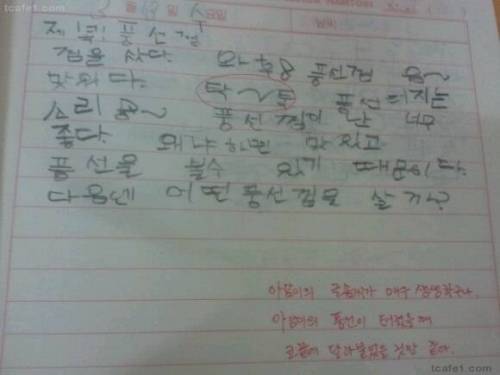 tcafe1.com
월 일 요일
날씨
제목: 풍선껌
껌을 샀다. 와 풍선껌 음~
맛있다. 탁~톡 풍선 터지는
소리 굿~ 풍선껌이 난 너무
좋다. 왜냐하면 맛있고
풍선을 불수 있기 때문이다.
다음엔 어떤 풍선껌을 살까?
아일이의 글솜씨가 매우 생생하구나.
풍선이 터졌을때
코끝에 달라붙었을 것만 같다.
tcafe1.com